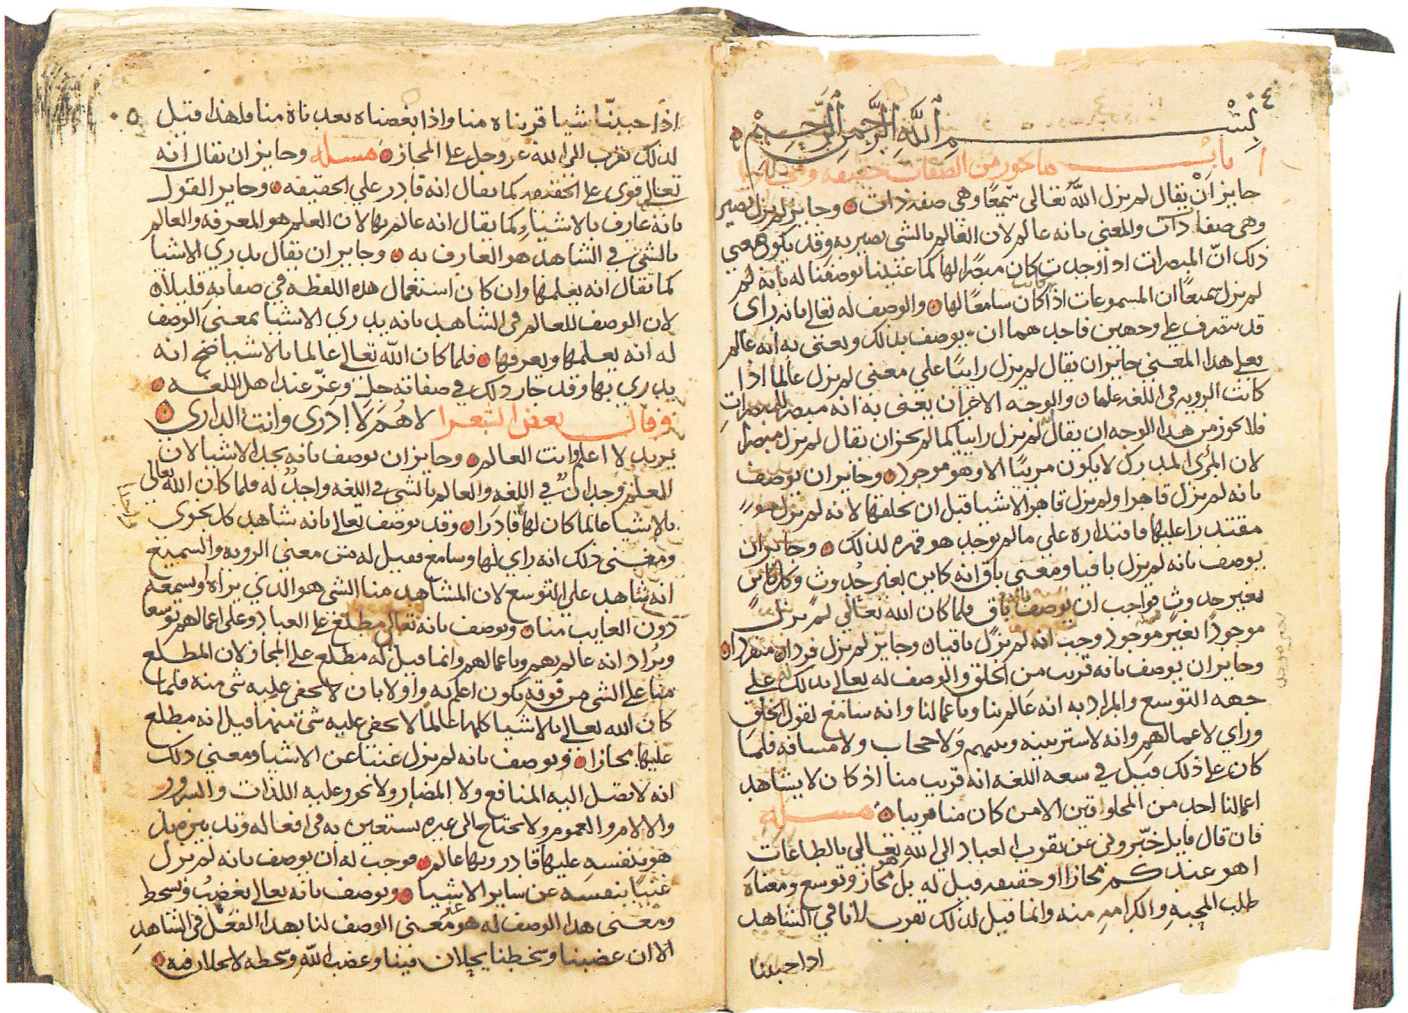 ٤
بسم الله الرحمن الرحيم
باب ما يجوز من الصفات حقيقة وفي
جايز ان يقال لم يزل الله تعالى سميعًا وهي صفه ذات وجايز لم يزل بصير
وهي صفه ذات والمعنى بانه عالم لان العالم بالشي بصير به وقد يكون معنى
ذلك انّ المبصرات اذا وجدت كان مبصرا لها كما عنينا بوصفنا له بانه لم
يزل سميعًا ان المسموعات اذا كانت كان سامعًا لها والوصف له تعالى بانه راى
قد يتصرف على وجهين فاحدهما ان يوصف بذلك ويعنى به انه عالم
فعلى هذا المعنى جايز ان يقال لم يزل رايئًا على معنى لم يزل عالما اذا
كانت الرويه في اللغه علما والوجه الاخر ان يعنى به انه مبصر للمبصرات
فلا يجوز من هذا الوجه ان يقال لم يزل رايئا كما لم يجز ان يقال لم يزل مبصرا
لان المرُى المدرك لا يكون مريئًا الا وهو موجود وجايز ان يوصف
بانه لم يزل قاهرا ولم يزل قاهر الاشيا قبل ان يخلقها لانه لم يزل
مقتدرا عليها فاقتداره على مالم يوجد هو قهره لذلك وجايز ان
يوصف بانه لم يزل باقيا ومعنى باق انه كاين بغير حُدوث وكل كاين
بغير حدوث فواجب ان يوصف بانه باق فلما كان الله تعالى لم يزل
موجودًا بغير موجود وجب انه لم يزل باقيا وجايز لم يزل فردا منفردا
وجايز ان يوصف بانه قريب من الخلق والوصف له تعالى بذلك على
جهه التوسع والمراد به انه عالم بنا وباعمالنا وانه سامع لقول الخلق
وراي لاعمالهم وانه لا ستر بينه وبينهم ولا حجاب ولا مسافه فلما
كان على ذلك قيل في سعه اللغه انه قريب منا اذ كان لا يشاهد
اعمالنا احد من المخلوقين الا من كان منا قريبا مسئله
فان قال قايل خبّروني عن تقرب العباد الى الله تعالى بالطاعات
اهو عندكم مجازا او حقيقه قيل له بل هو مجاز وتوسع ومعناه
طلب المحبه والكرامه منه وانما قيل لذلك تقرب لانا في الشاهد
اذا احببنا
٥
اذا احببنّا شيا قربناه منا واذا بغضناه بعدناه منا فلهذا قيل
لذلك تقرب الى الله عز وجل على المجاز مسئله وجايز ان يقال انه
تعالى قوى على الحقيقه كما يقال انه قادر على الحقيقه وجايز القول
بانه عارف بالاشيا كما يقال انه عالم بها لان العلم هو المعرفه والعالم
بالشي في الشاهد هو العارف به وجايز ان يقال يدري الاشيا
كما يقال انه يعلمها وان كان استعمال هذه اللفظه في صفاته قليلا
لان الوصف للعالم في الشاهد بانه يدري الاشيا بمعنى الوصف
له انه يعلمها ويعرفها فلما كان الله تعالى عالما بالاشيا صح انه
يدري بها وقد جاز ذلك في صفاته جل وعزّ عند اهل اللغه
وقال بعض الشعرا لاهُمّ لا ادري وانت الداري
يريد لا اعلم وانت العالم وجايز ان يوصف بانه يجد الاشيا لان
العلم وجدان في اللغه والعالم بالشي في اللغه واجد له فلما كان الله تعالى
بالاشيا عالما كان لها واجدا وقد يوصف تعالى بانه شاهد كل نجوى
ومعنى ذلك انه راي لها وسامع فقيل له من معنى الرويه والسميع
انه شاهد على التوسع لان المشاهد منا الشي هو الذي يراه ويسمعه
دون الغايب منا ويوصف بانه تعالى مطلع على العباد وعلى اعمالهم توسعا
ويُراد انه عالم بهم وباعمالهم وانما قيل له مطلع على المجاز لان المطلع
منا على الشي من فوقه يكون اعلم به واولا بان لا يخفى عليه شي منه فلما
كان الله تعالى بالاشيا كلها عالما لا يخفى عليه شي منها قيل انه مطلع
عليها مجازا ويوصف بانه لم يزل غنيّا عن الاشيا ومعنى ذلك
انه لا تصل اليه المنافع ولا المضار ولا تجوز عليه اللذات والسرور
والالام والغموم ولا يحتاج الى غيره يستعين به في افعاله وتدبيره بل
هو بنفسه عليها قادر وبها عالم فوجب له ان يوصف بانه لم يزل
غنيّا بنفسه عن ساير الاشيا ويوصف بانه تعالى يغضب ويسخط
ومعنى هذا الوصف له هو معنى الوصف لنا بهذا الفعل في الشاهد
الا ان غضبنا وسخطنا يحلان فينا وغضب الله وسخطه لا يحلان فيه